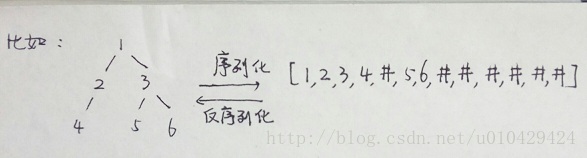 比如：
1
2 3
4 5 6
序列化
反序列化
[1,2,3,4,#,5,6,#,#,#,#,#,#]
http://blog.csdn.net/u010429424